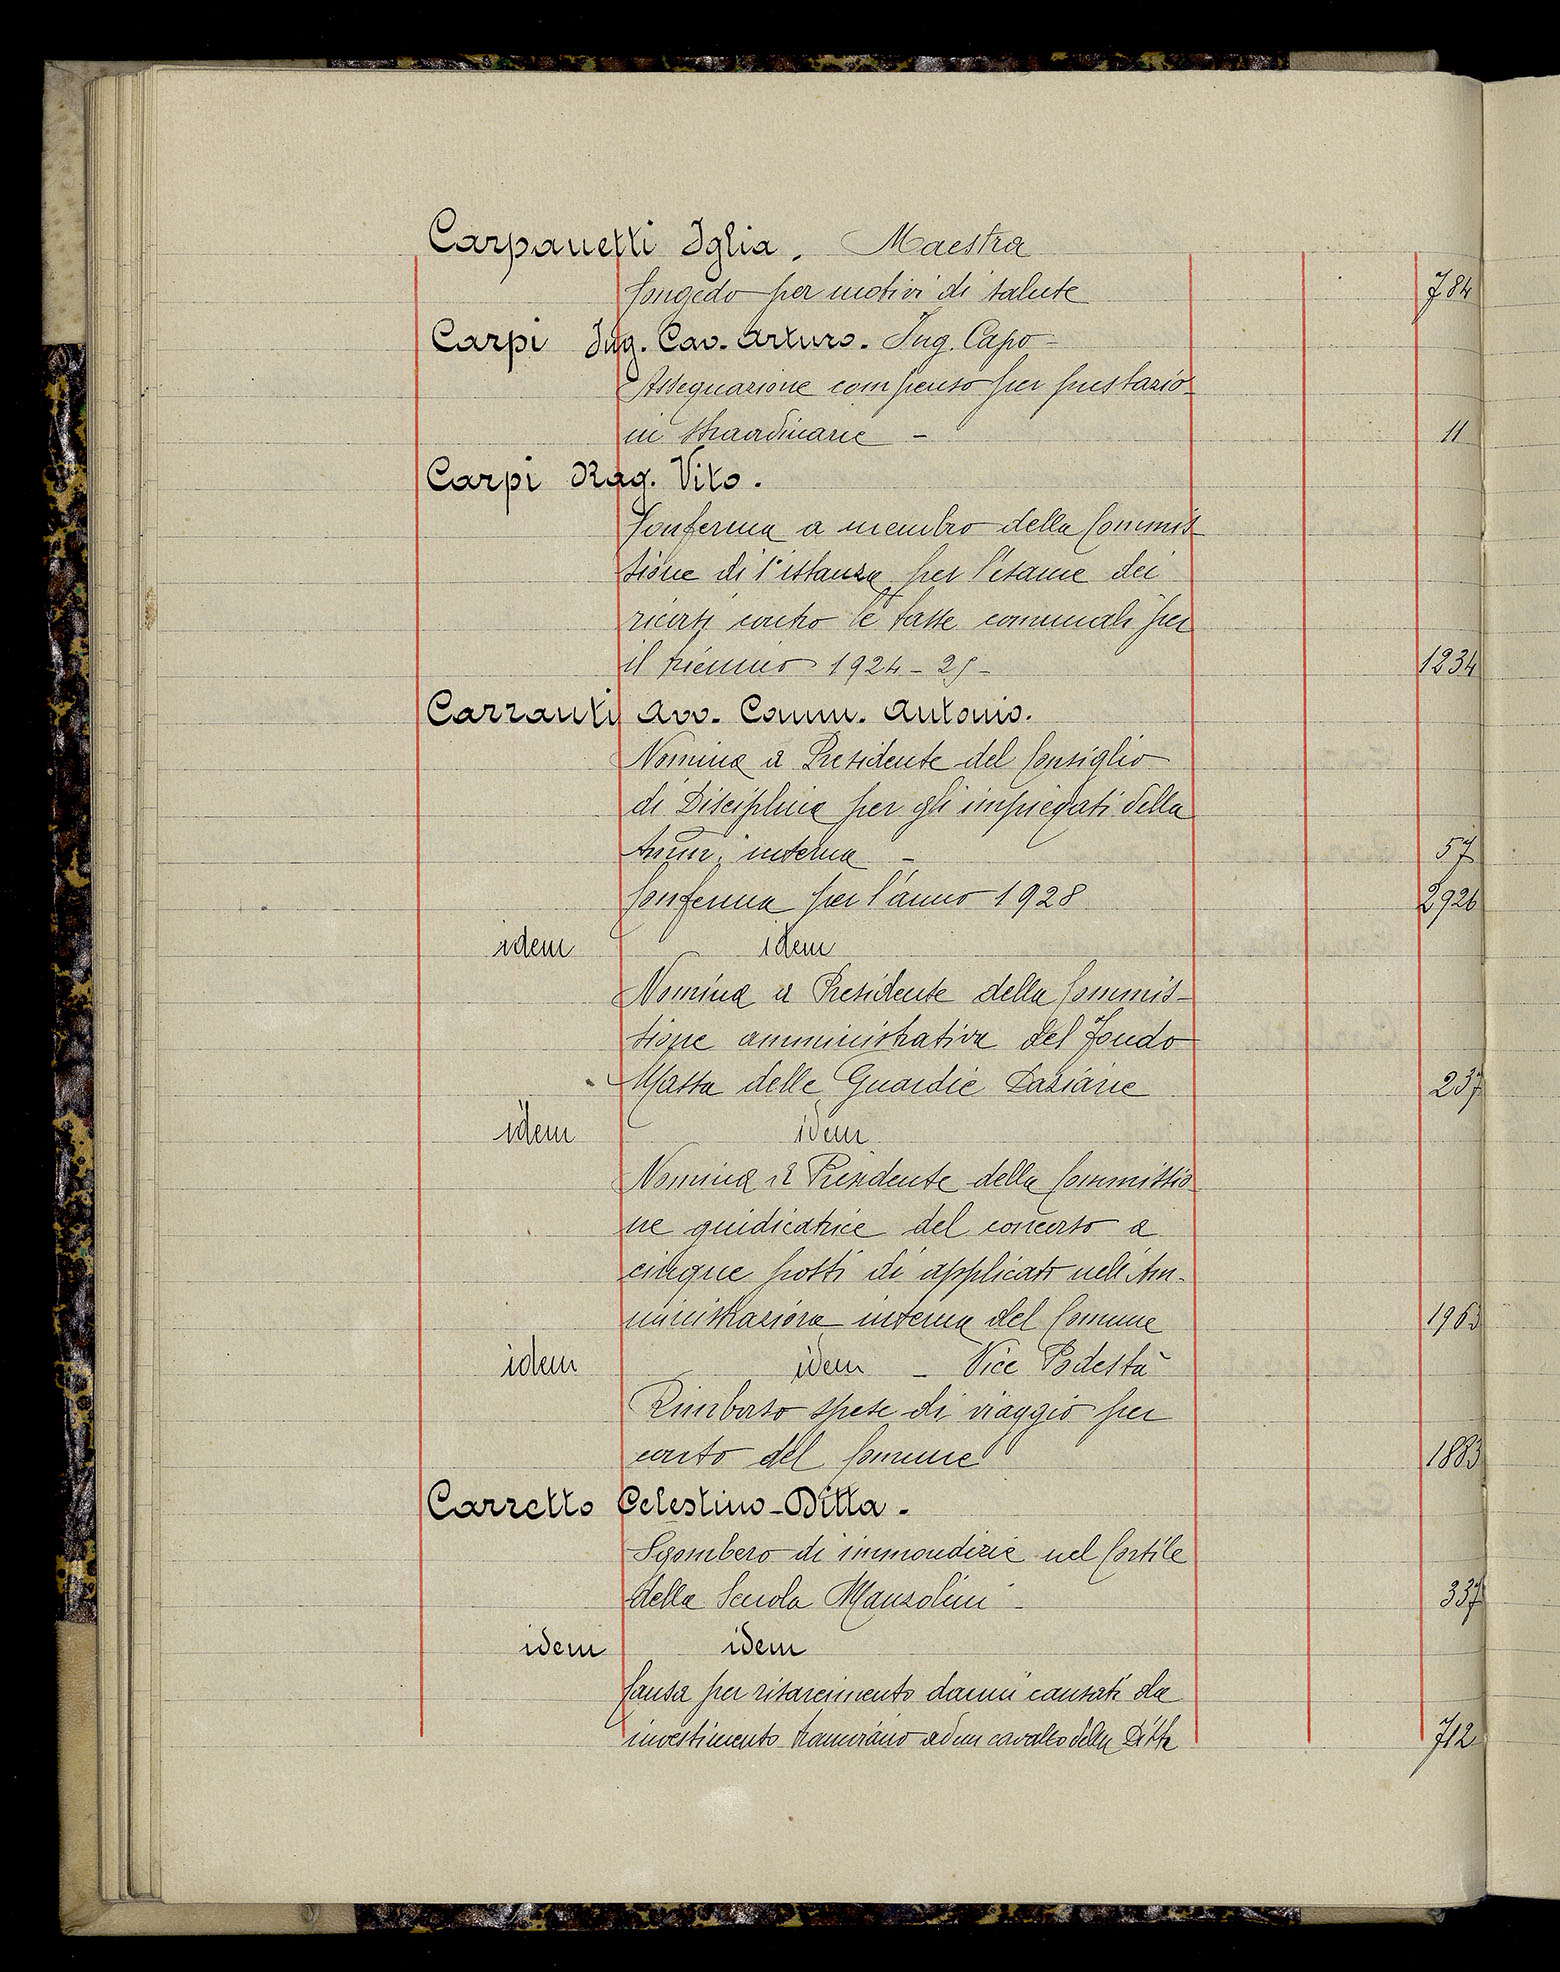 Carpanetti Iglia. Maestra
Congedo per motivi di salute 784
Carpi Ing. Cav. Arturo. Ing. Capo -
Assegnazione compenso per prestazio-
ni straordinarie - 11
Carpi Rag. Vito.
Conferma a membro della Commis-
sione di 1ª istanza per l'esame dei
ricorsi contro le tasse comunali per
il biennio 1924-25- 1234
Carranti Avv. Comm. Antonio.
Nomina a Presidente del Consiglio
di Disciplina per gli impiegati della
Amm. interna - 57
Conferma per l'anno 1928 2926
idem idem
Nomina a Presidente della Commis-
sione amministrativa del Fondo
Massa delle Guardie Daziarie 237
idem idem
Nomina a Presidente della Commissio-
ne giudicatrice del concorso a
cinque posti di applicato nell'Am-
ministrazione interna del Comune 1963
idem idem - Vice Podestà
Rimborso spese di viaggio per
conto del Comune 1883
Carretto Celestino-Ditta.
Sgombero di immondizie nel Cortile
della Scuola Manzolini - 337
idem idem
Causa per risarcimento danni causati da
investimento tramviario ad un cavallo della Ditta 712